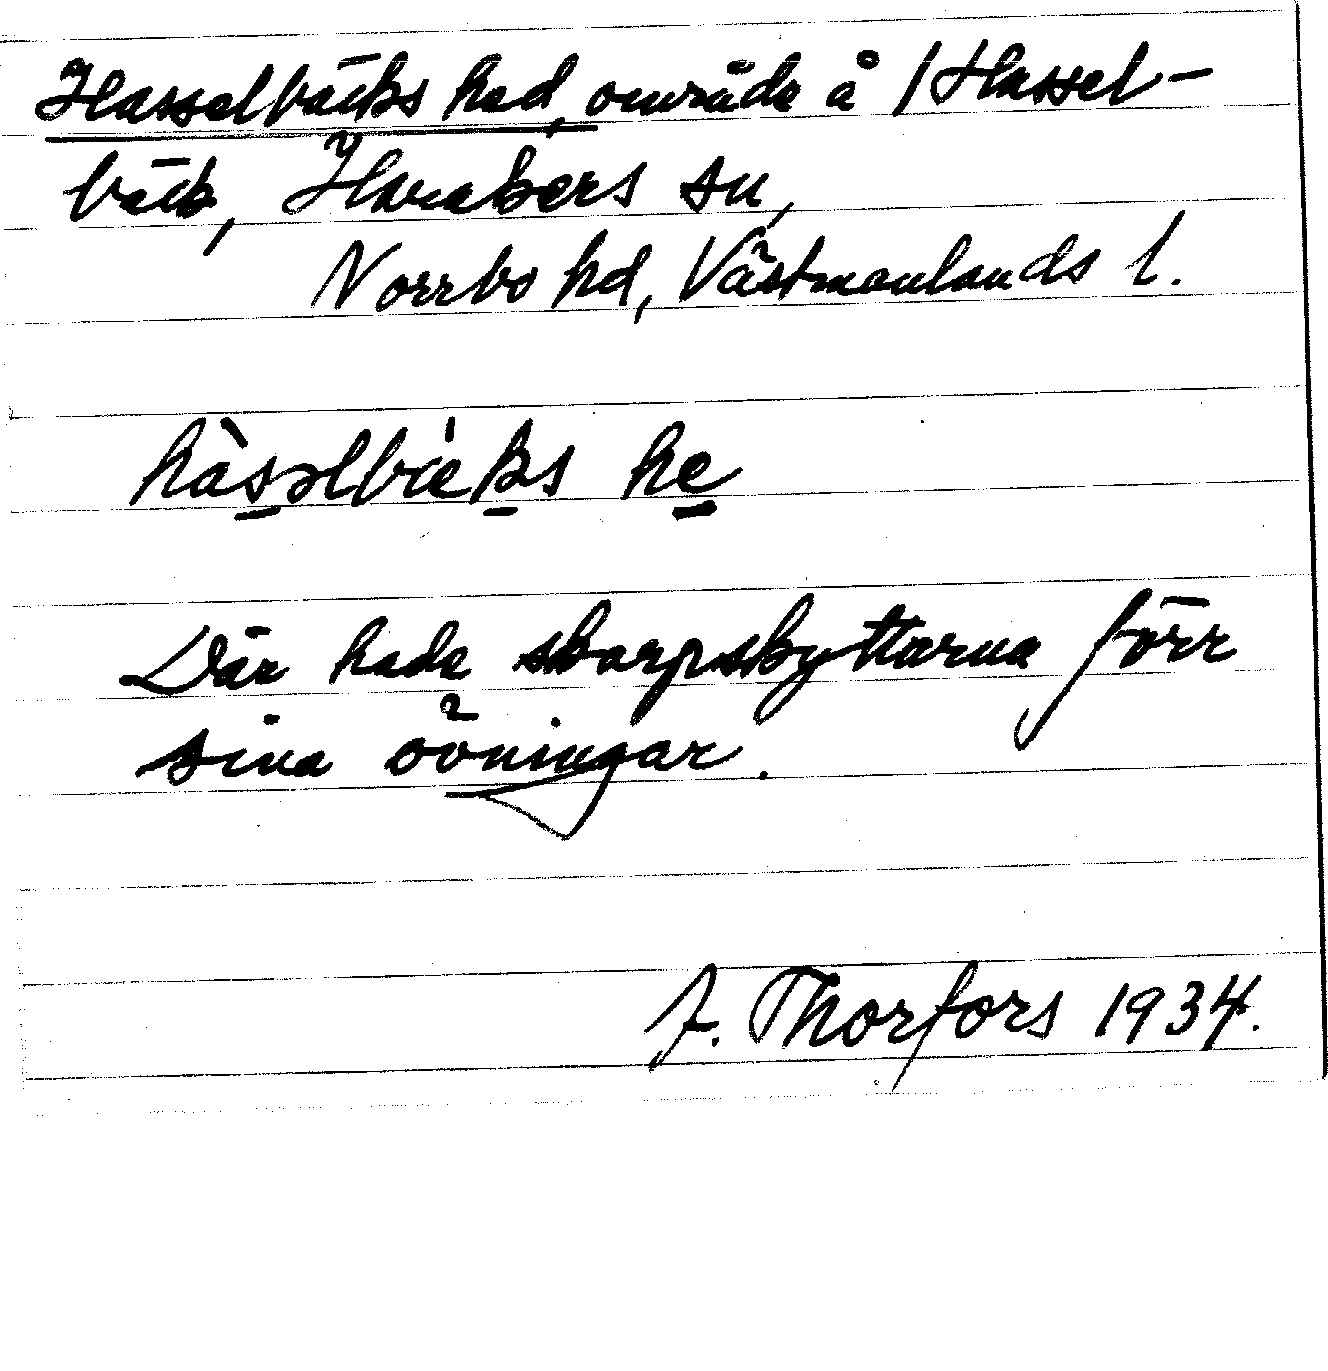 Hasselbäcks hed, område å 1 Hassel-
bäck, Harakers sn,
Norrbo hd, Västmanlands l.
hàsəlbæ̀ks he
Där hade skarpskyttarna förr
sina övningar.
J. Thorfors 1934.